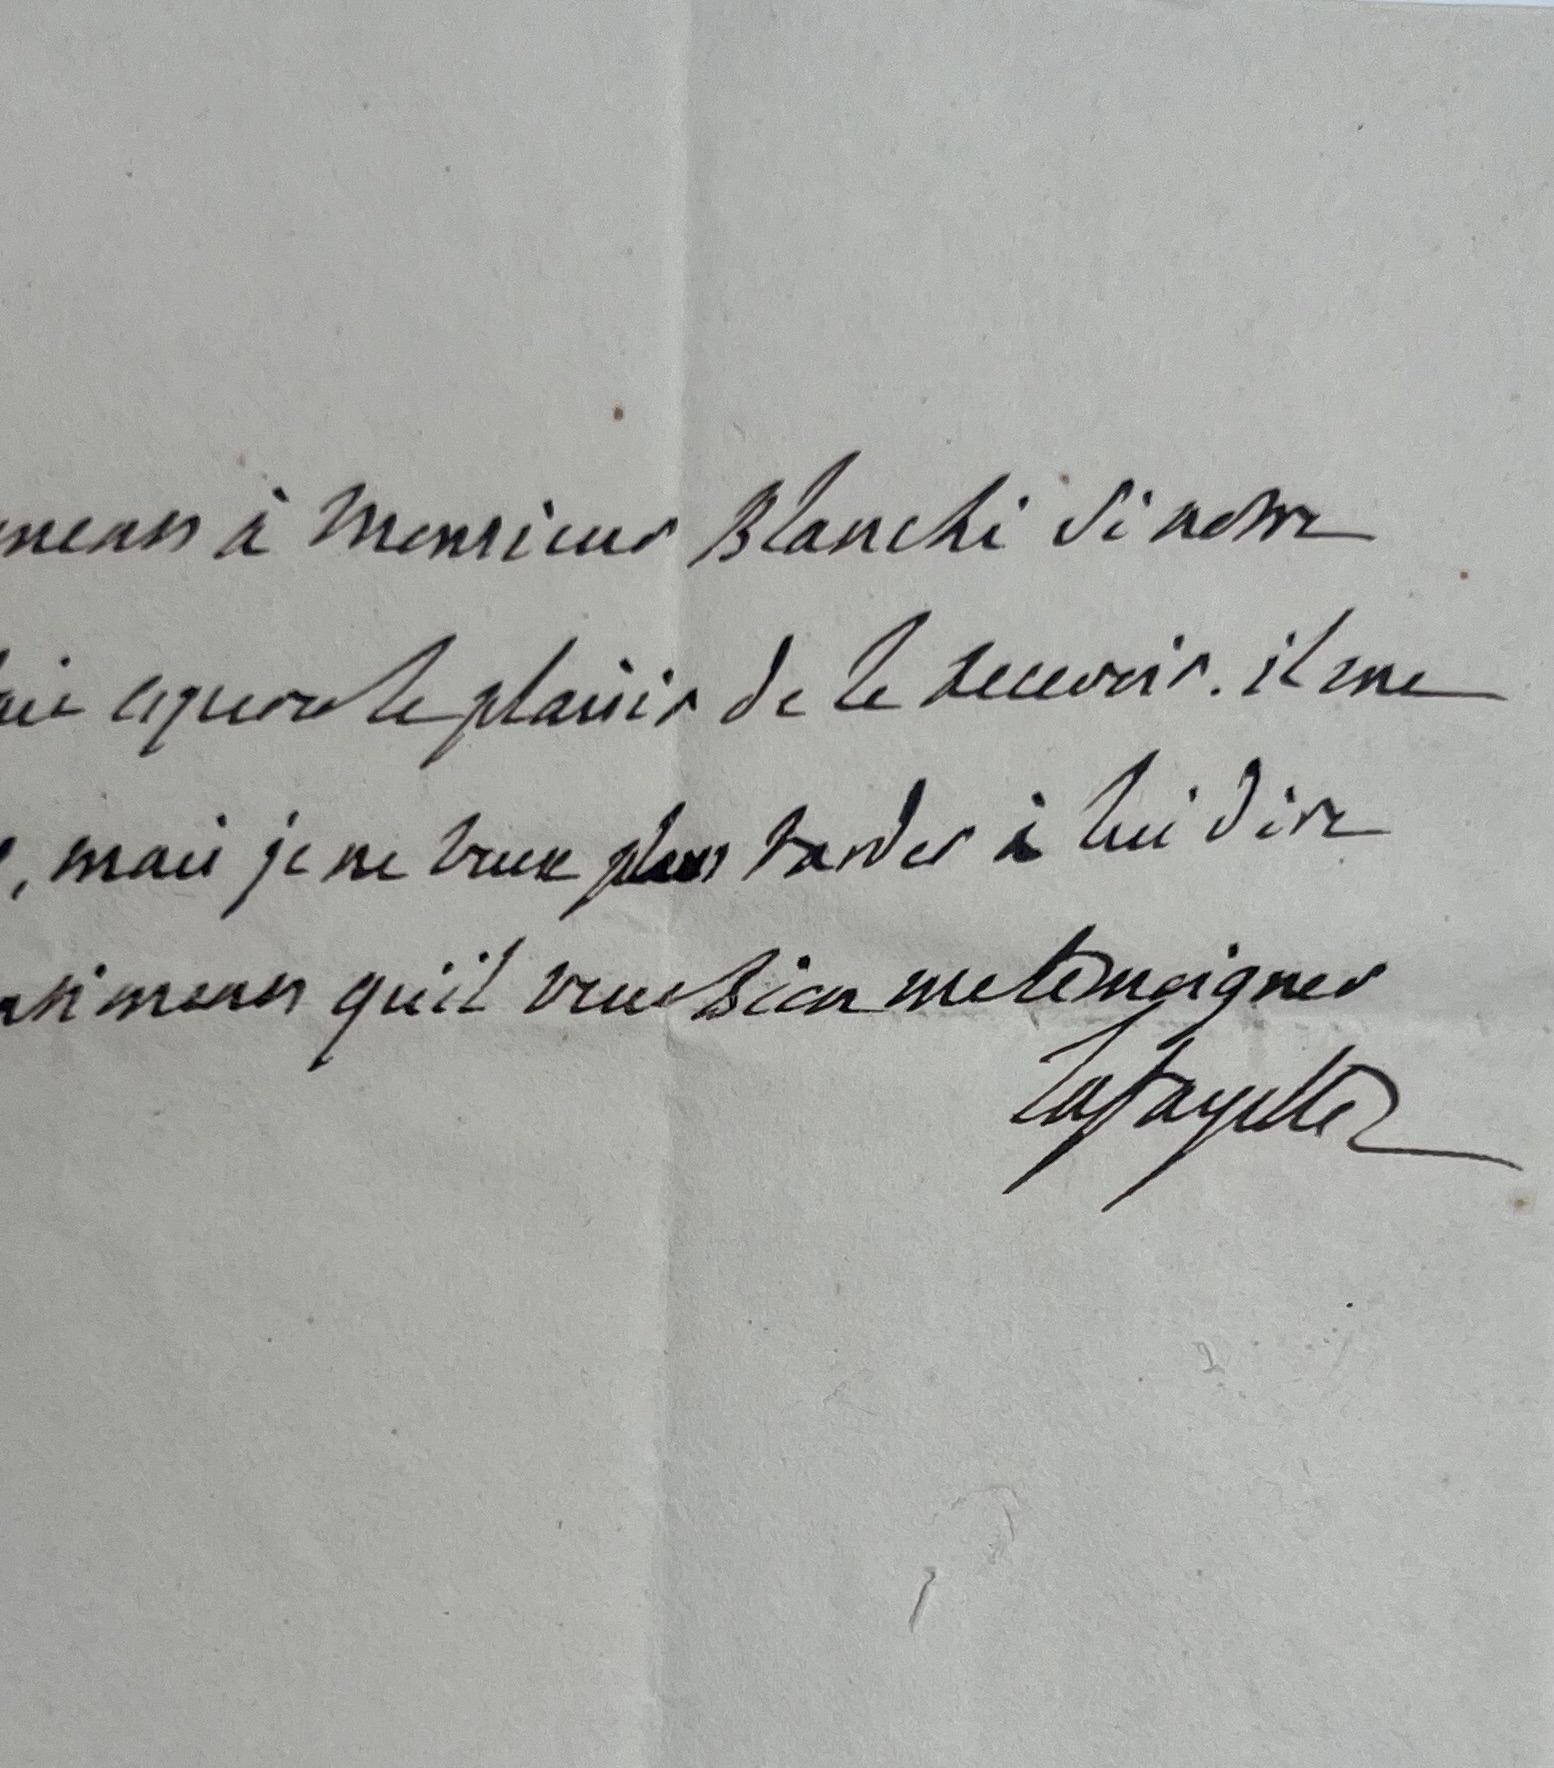 à Monsieur Blanchi si notre
le plaisir de le recevoir. il me
, mais je ne veux plus tarder à lui dire
qu'il veut bien me temoigner
Lafayette